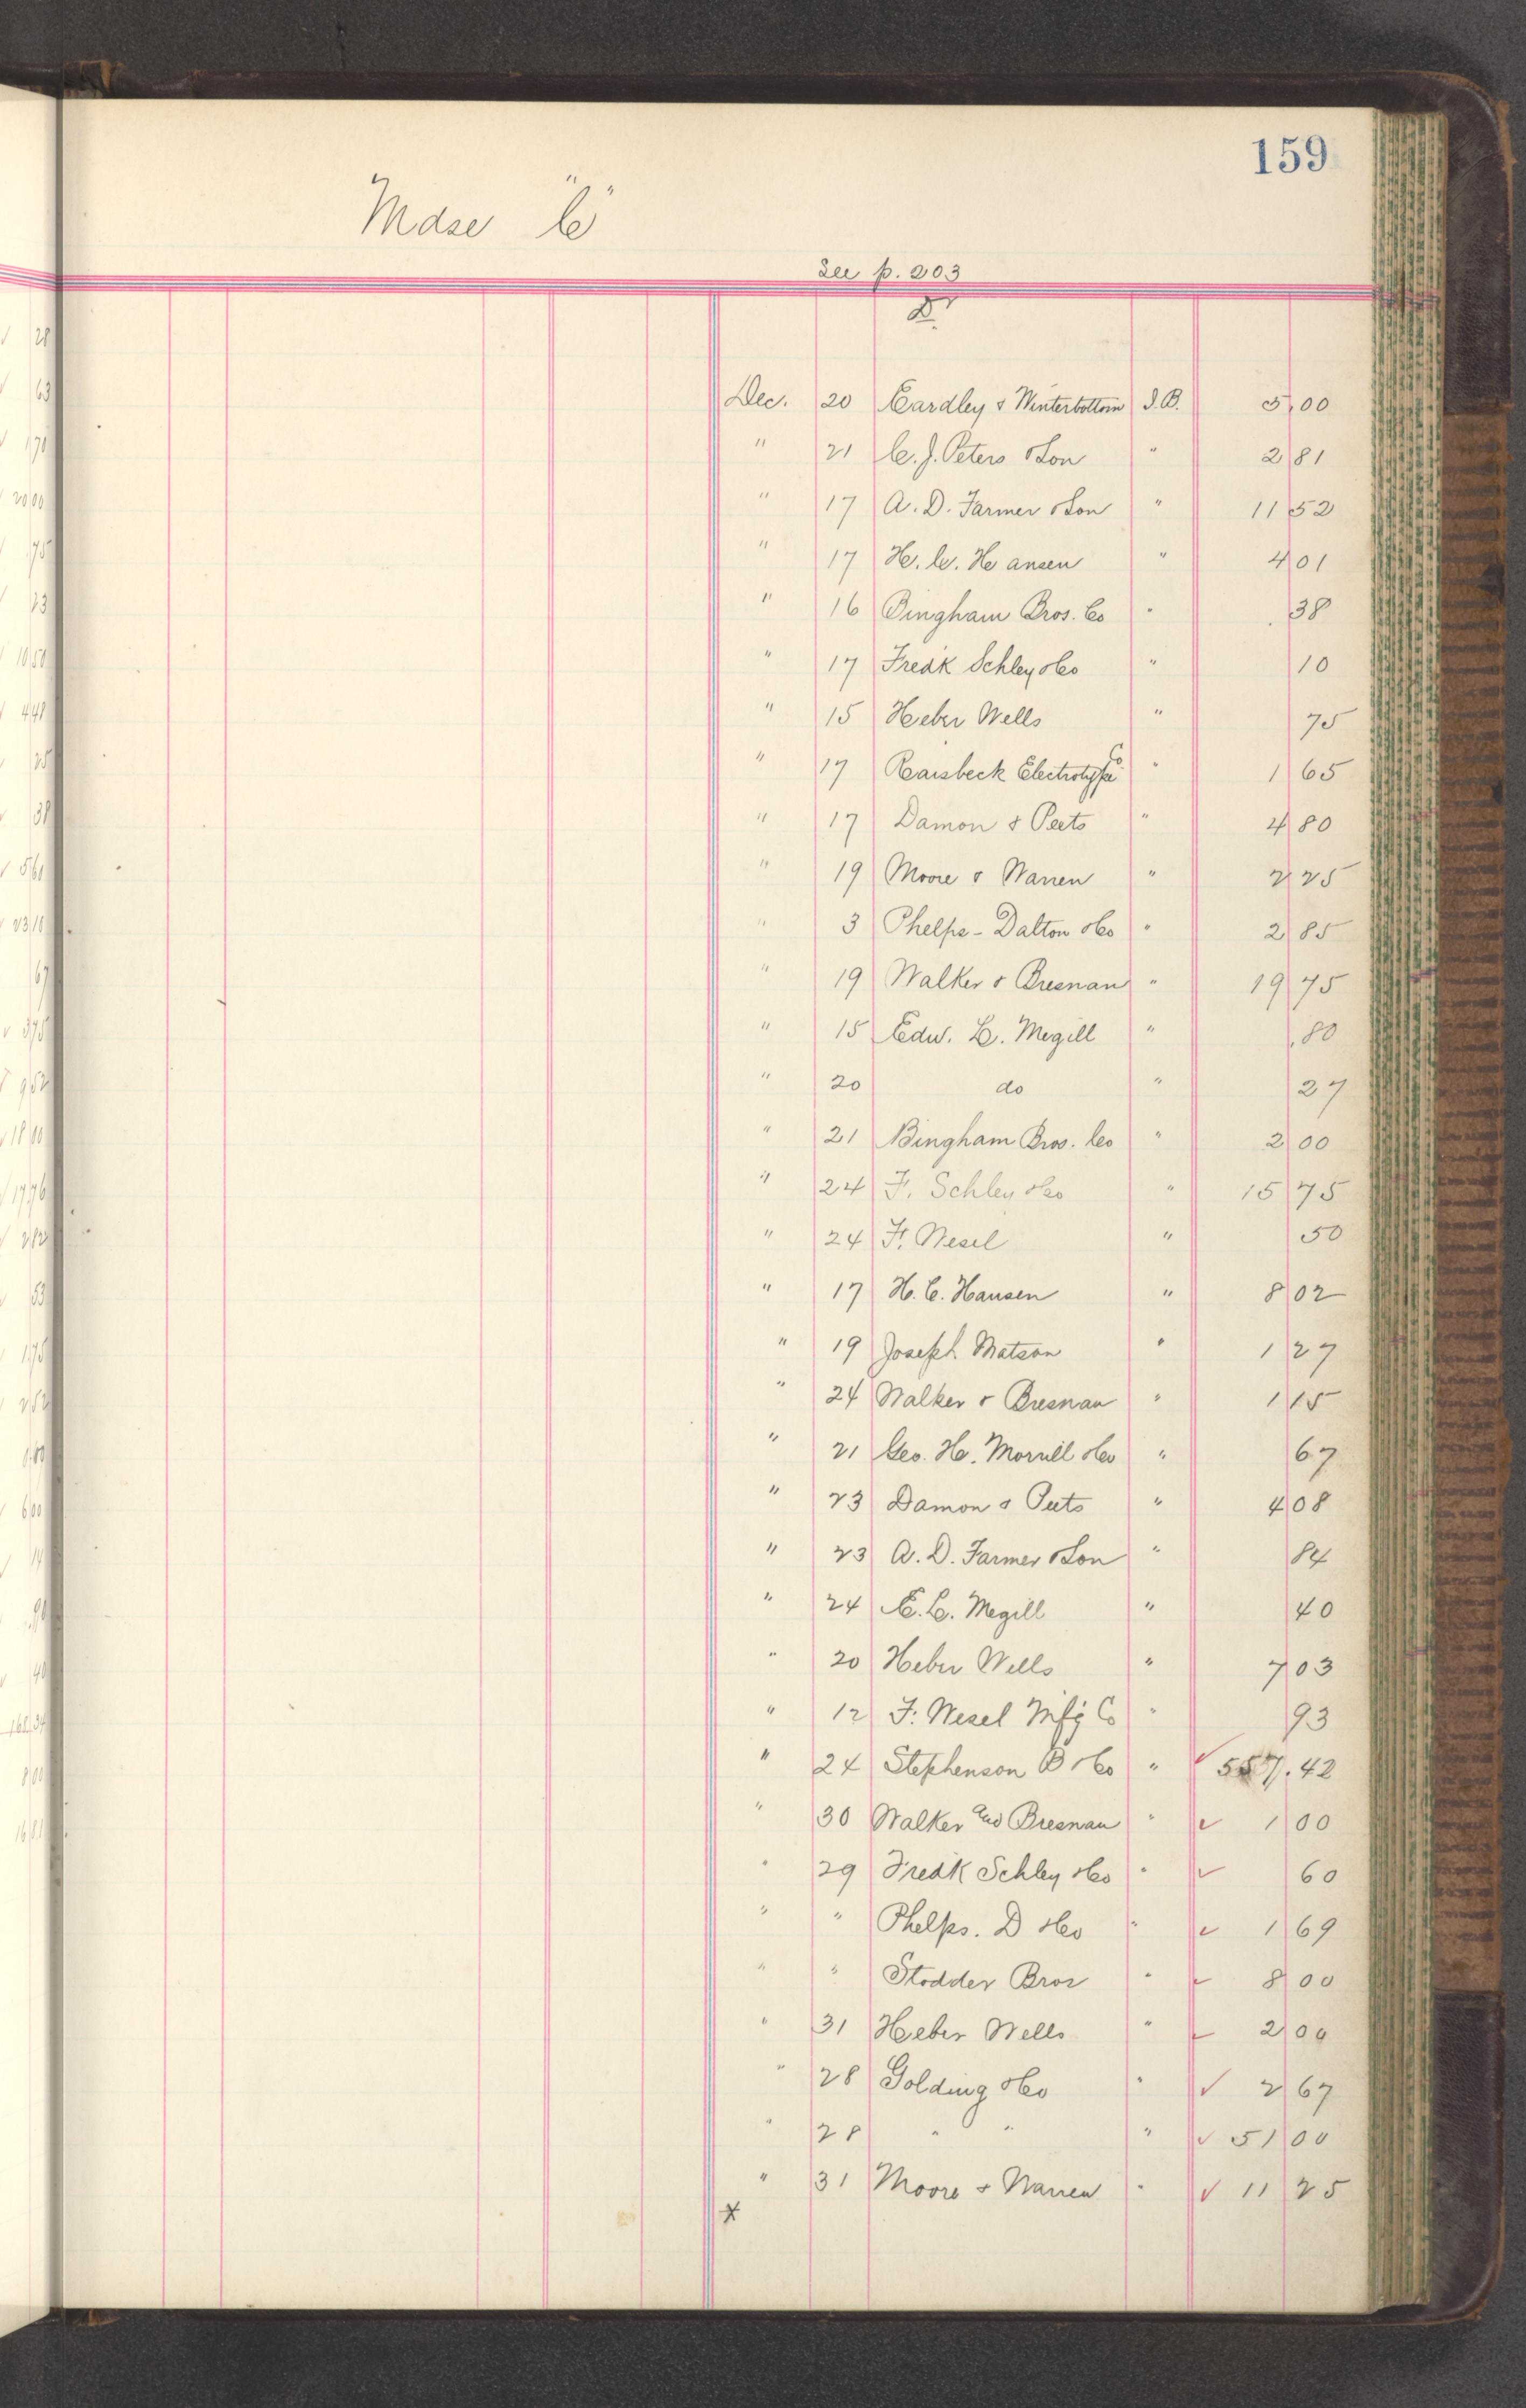 159
Mdse "C"
See p. 203
Dr
Dec. 20 Eardley & Winterbottom I.B. 5.00
" 21 C. J. Peters & Son " 2 81
" 17 A. D. Farmer & Son " 11 52
" 17 H. C. Hansen " 4 01
" 16 Bingham Bros. Co " .38
" 17 Fredk Schley & Co " 10
" 15 Heber Wells " 75
" 17 Raisbeck Electrotype Co " 1 65
" 17 Damon & Peets " 4 80
" 19 Moore & Warren " 2 25
" 3 Phelps-Dalton & Co " 2 85
" 19 Walker & Bresnan " 19 75
" 15 Edw. L. Megill " .80
" 20 do " 27
" 21 Bingham Bros. Co " 2 00
" 24 F. Schley & Co " 15 75
" 24 F. Wesel " 50
" 17 H. C. Hansen " 8 02
" 19 Joseph Matson " 1 27
" 24 Walker & Bresnan " 1 15
" 21 Geo. H. Morrill & Co " 67
" 23 Damon & Peets " 4 08
" 23 A. D. Farmer & Son " 84
" 24 E. L. Megill " 40
" 20 Heber Wells " 7 03
" 12 F. Wesel Mfg Co " 93
" 24 Stephenson B & Co " ✓ 557.42
" 30 Walker and Bresnan " ✓ 1 00
" 29 Fredk Schley & Co " ✓ 60
" " Phelps. D & Co " ✓ 1 69
" " Stodder Bros " ✓ 8 00
" 31 Heber Wells " ✓ 2 00
" 28 Golding & Co " ✓ 2 67
" 28 " " " ✓ 51 00
" 31 Moore & Warren " ✓ 11 25
x